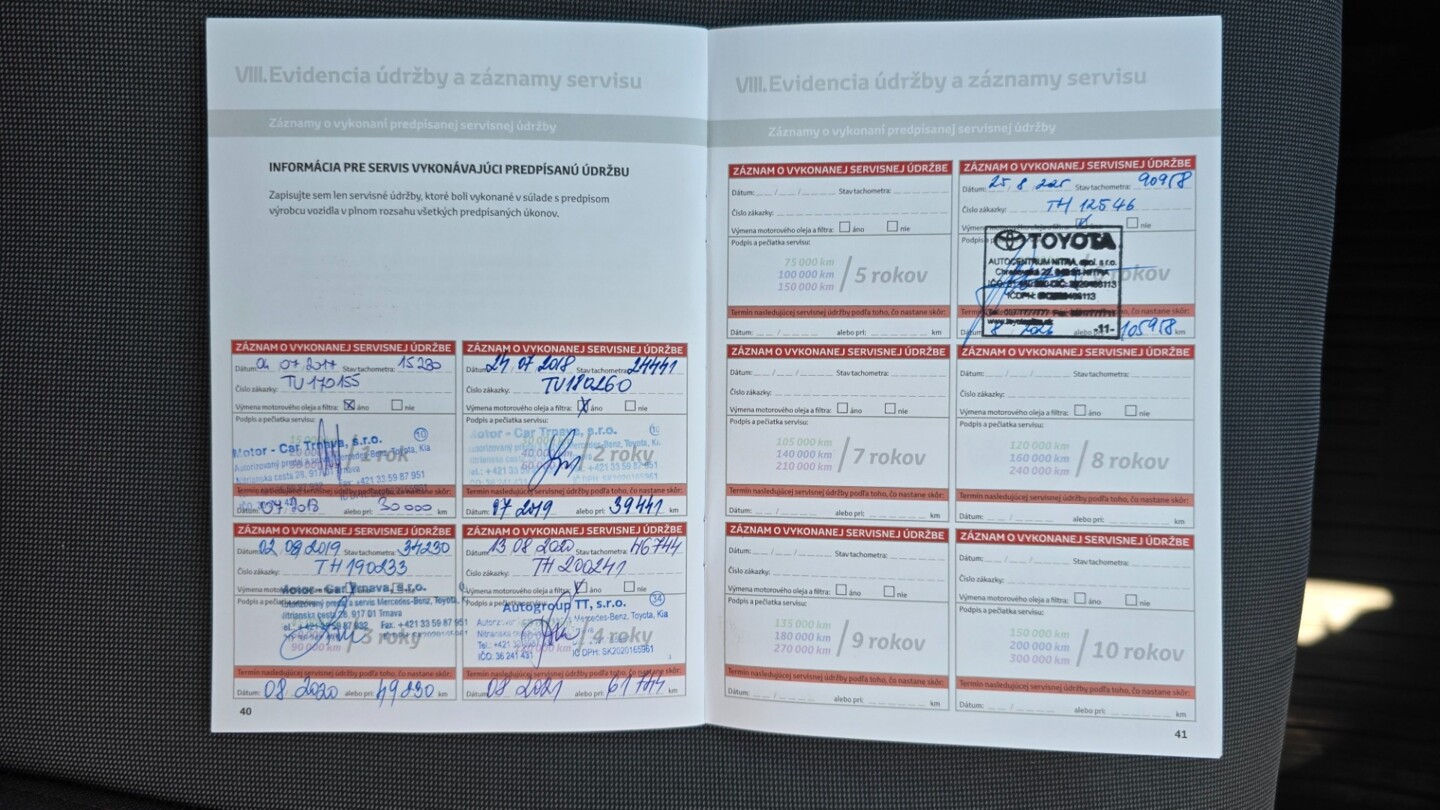 VIII. Evidencia údržby a záznamy servisu
Záznamy o vykonaní predpísanej servisnej údržby
INFORMÁCIA PRE SERVIS VYKONÁVAJÚCI PREDPÍSANÚ ÚDRŽBU
Zapisujte sem len servisné údržby, ktoré boli vykonané v súlade s predpisom
výrobcu vozidla v plnom rozsahu všetkých predpísaných úkonov.
ZÁZNAM O VYKONANEJ SERVISNEJ ÚDRŽBE
Dátum: 04 07 2017 Stav tachometra: 15230
Číslo zákazky: TU170155
Výmena motorového oleja a filtra: áno nie
Podpis a pečiatka servisu:
Motor - Car Trnava, s.r.o. 10
1 rok
Nitrianska cesta 28, 917 01 Trnava
Fax: +421 33 59 87 951
Termín nasledujúcej servisnej údržby podľa toho, čo nastane skôr:
Dátum: 07 2018 alebo pri: 30000 km
ZÁZNAM O VYKONANEJ SERVISNEJ ÚDRŽBE
Dátum: 24 07 2018 Stav tachometra: 24441
Číslo zákazky: TU180260
Výmena motorového oleja a filtra: áno nie
Podpis a pečiatka servisu:
Motor - Car Trnava, s.r.o.
2 roky
Termín nasledujúcej servisnej údržby podľa toho, čo nastane skôr:
Dátum: 07 2019 alebo pri: 39441 km
ZÁZNAM O VYKONANEJ SERVISNEJ ÚDRŽBE
Dátum: 02 08 2019 Stav tachometra: 34230
Číslo zákazky: TH190233
Motor - Car Trnava, s.r.o.
Autorizovaný predaj a servis Mercedes-Benz, Toyota, Kia
Nitrianska cesta 28, 917 01 Trnava
Fax: +421 33 59 87 951
90 000 km 3 roky
Termín nasledujúcej servisnej údržby podľa toho, čo nastane skôr:
Dátum: 08 2020 alebo pri: 49230 km
ZÁZNAM O VYKONANEJ SERVISNEJ ÚDRŽBE
Dátum: 13 08 2020 Stav tachometra: 46744
Číslo zákazky: TH200241
Výmena motorového oleja a filtra: áno nie
Autogroup TT, s.r.o. 34
Mercedes-Benz, Toyota, Kia
4 roky
IČO: 36 241 431 IČ DPH: SK2020165961
Termín nasledujúcej servisnej údržby podľa toho, čo nastane skôr:
Dátum: 08 2021 alebo pri: 61744 km
40
VIII. Evidencia údržby a záznamy servisu
Záznamy o vykonaní predpísanej servisnej údržby
ZÁZNAM O VYKONANEJ SERVISNEJ ÚDRŽBE
Dátum: / / Stav tachometra:
Číslo zákazky:
Výmena motorového oleja a filtra: áno nie
Podpis a pečiatka servisu:
75 000 km
100 000 km
150 000 km
5 rokov
Termín nasledujúcej servisnej údržby podľa toho, čo nastane skôr:
Dátum: / alebo pri: km
ZÁZNAM O VYKONANEJ SERVISNEJ ÚDRŽBE
Dátum: 25, 8 2025 Stav tachometra: 90958
Číslo zákazky: TH 12546
nie
TOYOTA
AUTOCENTRUM NITRA, spol. s r.o.
-11-
8 2026 105958 km
ZÁZNAM O VYKONANEJ SERVISNEJ ÚDRŽBE
Dátum: / / Stav tachometra:
Číslo zákazky:
Výmena motorového oleja a filtra: áno nie
Podpis a pečiatka servisu:
105 000 km
140 000 km
210 000 km
7 rokov
Termín nasledujúcej servisnej údržby podľa toho, čo nastane skôr:
Dátum: / alebo pri: km
ZÁZNAM O VYKONANEJ SERVISNEJ ÚDRŽBE
Dátum: / / Stav tachometra:
Číslo zákazky:
Výmena motorového oleja a filtra: áno nie
Podpis a pečiatka servisu:
120 000 km
160 000 km
240 000 km
8 rokov
Termín nasledujúcej servisnej údržby podľa toho, čo nastane skôr:
Dátum: / alebo pri: km
ZÁZNAM O VYKONANEJ SERVISNEJ ÚDRŽBE
Dátum: / / Stav tachometra:
Číslo zákazky:
Výmena motorového oleja a filtra: áno nie
Podpis a pečiatka servisu:
135 000 km
180 000 km
270 000 km
9 rokov
Termín nasledujúcej servisnej údržby podľa toho, čo nastane skôr:
Dátum: / alebo pri: km
ZÁZNAM O VYKONANEJ SERVISNEJ ÚDRŽBE
Dátum: / / Stav tachometra:
Číslo zákazky:
Výmena motorového oleja a filtra: áno nie
Podpis a pečiatka servisu:
150 000 km
200 000 km
300 000 km
10 rokov
Termín nasledujúcej servisnej údržby podľa toho, čo nastane skôr:
Dátum: / alebo pri: km
41